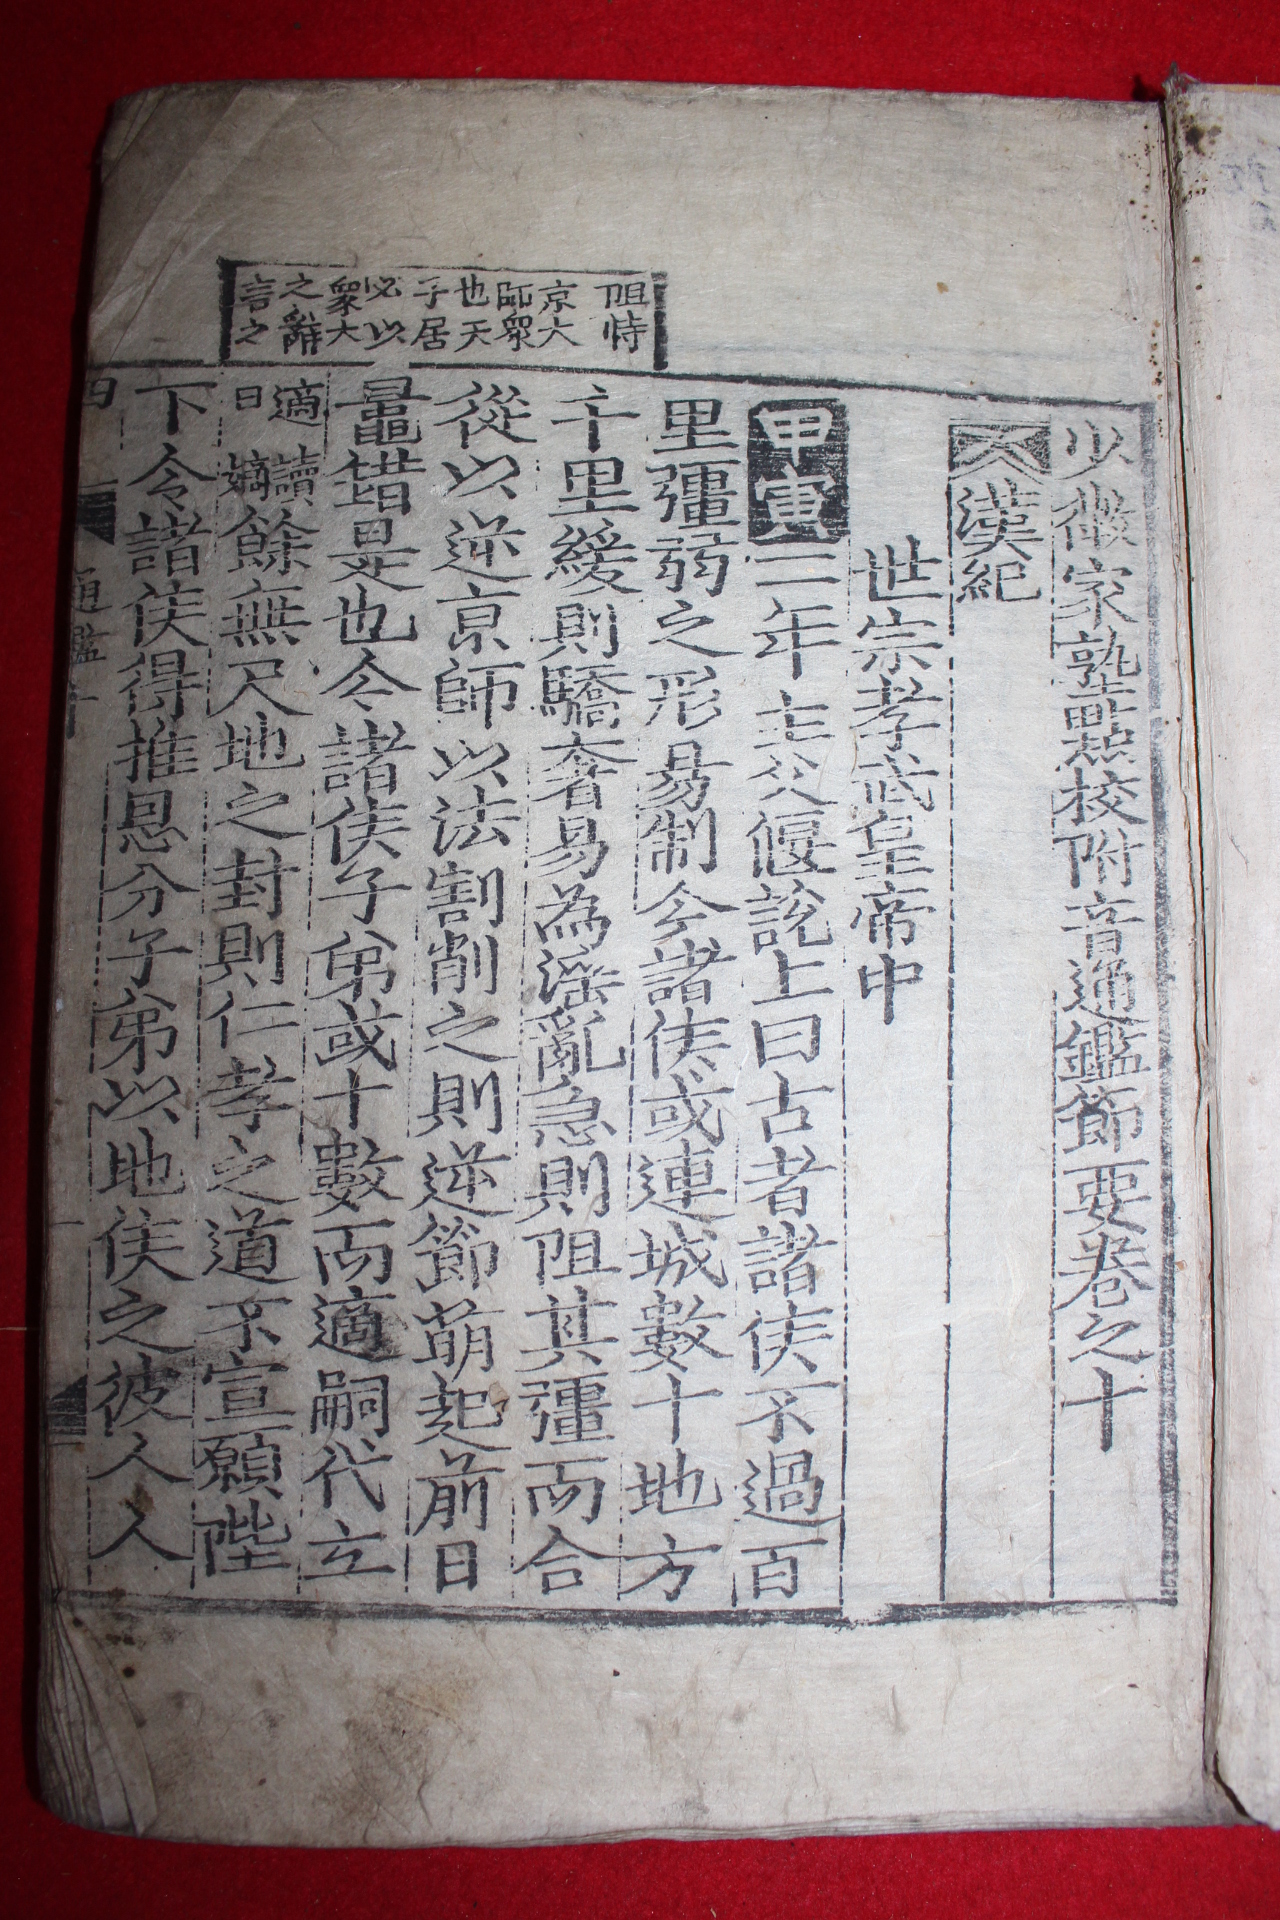 阻恃
京大
師衆
也天
子居
必以
衆大
之辭
言之
少微家塾點校附音通鑑節要卷之十
漢紀
世宗孝武皇帝中
甲寅二年主父偃說上曰古者諸侯不過百
里彊弱之形易制今諸侯或連城數十地方
千里緩則驕奢易為淫亂急則阻其彊而合
從以逆京師以法割削之則逆節萌起前日
鼂錯是也今諸侯子弟或十數而適嗣代立
適讀曰嫡餘無尺地之封則仁孝之道不宣願陛
下令諸侯得推恩分子弟以地侯之彼人人